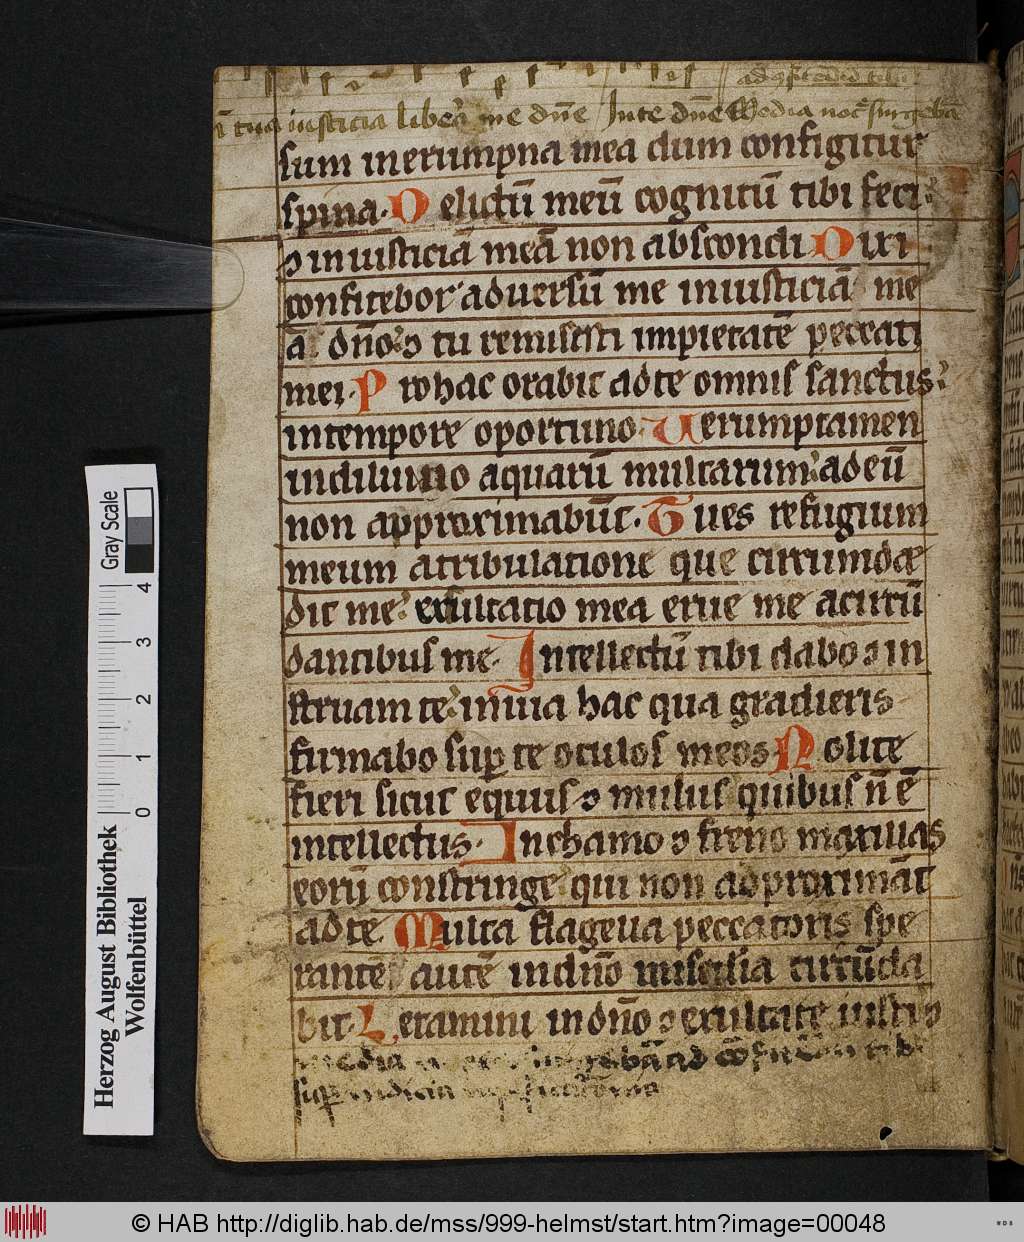 ī tua iusticia libeꝛa me dn̄e In te dn̄e Media noctē surgebā
sum in erumpna mea dum configitur
spina. Delictū meū cognitū tibi feci:
⁊ iniusticiā meā non abscondi Dixi
confitebor aduersū me iniusticiā me
ā dn̄o: ⁊ tu remisisti impietatē peccati
mei. Pro hac orabit ad te omnis sanctus:
in tempore oportuno. Uerumptamen
in diluuio aquarū multarum: ad eū
non approximabūt. Tu es refugium
meum a tribulatione que circumdæ
dit me: exultatio mea erue me a circū
dantibus me. Intellectū tibi dabo ⁊ in
struam te: in uia hac qua gradieris
firmabo suꝑ te oculos meos. Nolite
fieri sicut equus ⁊ mulus quibus n̄ ē
intellectus. In chamo ⁊ freno maxillas
eorū constringe qui non adproximāt
ad te. Multa flagella peccatoris spe
rantē autē in dn̄o misc̄dia circūda
bit. Letamini in dn̄o ⁊ exultate iusti ⁊
media surgebā ad cōfitēdū tibi
suꝑ iudicia
Herzog August Bibliothek
Wolfenbüttel
Gray Scale
0 1 2 3 4
© HAB http://diglib.hab.de/mss/999-helmst/start.htm?image=00048